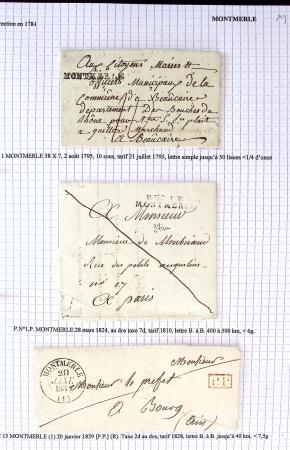 MONTMERLE
rection en 1781
Aux Citoyens Maires &
MONTMERLE
officiers Municipaux de la
Commune d'a Beaucaire
Departement Des Bouches du
Rhône pour
Marchand
a Beaucaire
1 MONTMERLE 38 X 7, 2 août 1795, 10 sous, tarif 21 juillet 1795, lettre simple jusqu'à 50 lieues <1/4 d'once
MONTMERLE
A Monsieur
Monsieur de
Rue des petits augustins
n° 17
A paris
P.N°1.P. MONTMERLE 28 mars 1824, au dos taxe 7d, tarif 1810, lettre B. à B. 400 à 500 km, < 6g.
MONTMERLE
20
(1)
Monsieur
Monsieur le prefet
P.P.
A Bourg
(ain)
13 MONTMERLE (1) 20 janvier 1839 [P.P.] (R). Taxe 2d au dos, tarif 1828, lettre B. à B. jusqu'à 40 km, < 7,5g